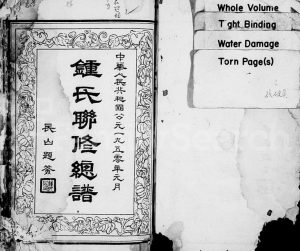 中華人民共和國公元一九五零年元月
鍾氏聯修總譜
民山題簽
Whole Volume
Tight Binding
Water Damage
Torn Page(s)